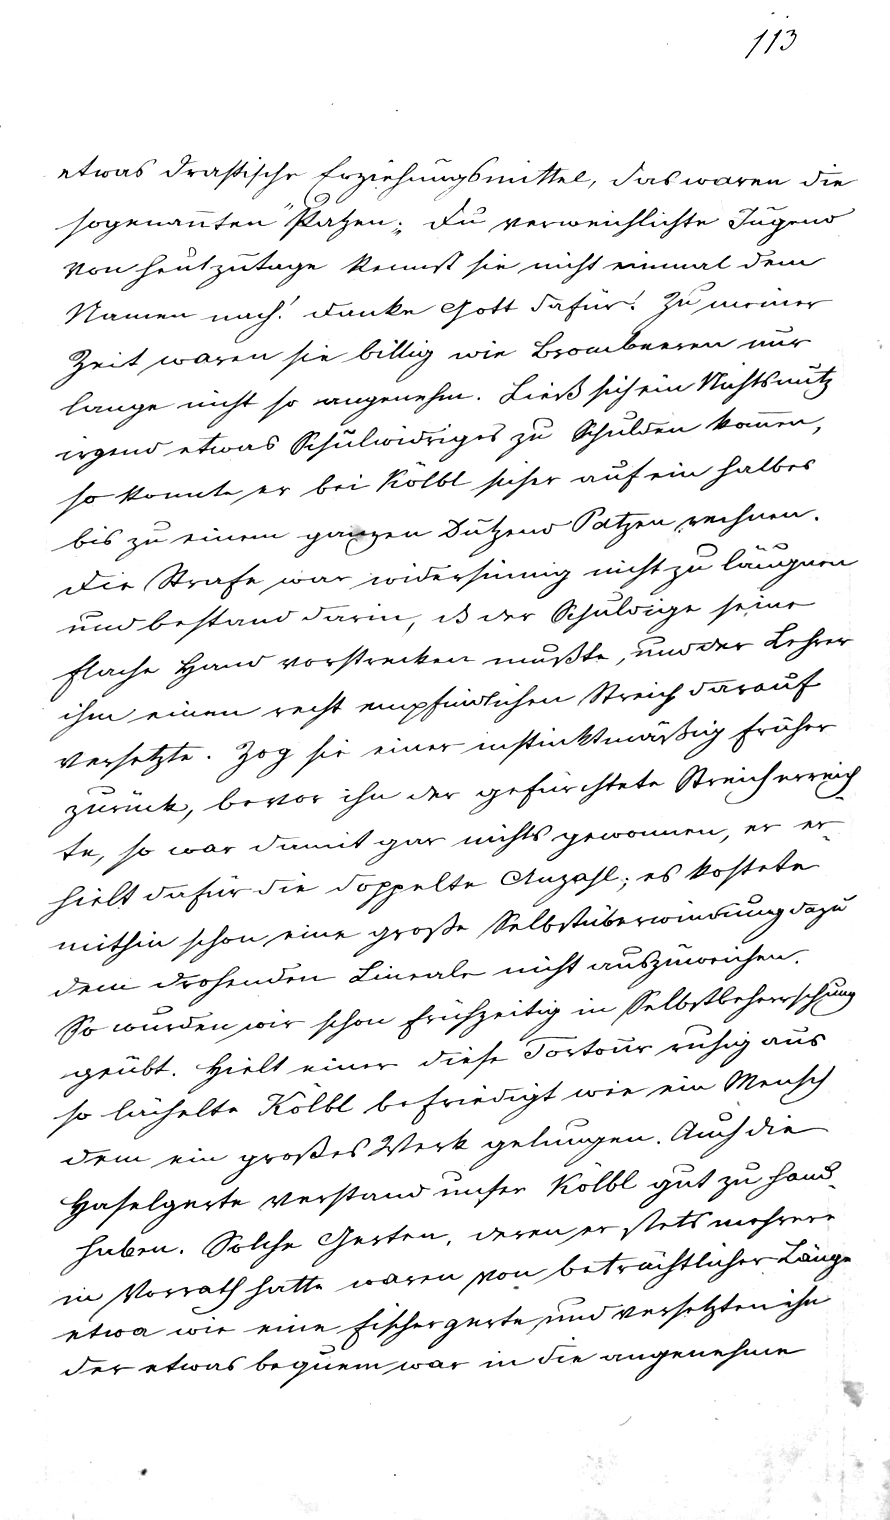 113
etwas drastische Erziehungsmittel, das waren die
sogenan̅ten "Patzen„ Du verweichlichte Jugend
von heutzutage kennst sie nicht einmal dem
Namen nach! Danke Gott dafür! Zu meiner
Zeit waren sie billig wie Brombeeren nur
lange nicht so angenehm. Ließ sich ein Nichtsnutz
irgend etwas Schulwidriges zu Schulden kom̅en,
so konnte er bei Kölbl sicher auf ein halbes
bis zu einem ganzen Dutzend Patzen rechnen.
Die Strafe war widersinnig nicht zu läugnen
und bestand darin, dß der Schuldige seine
flache Hand vorstrecken mußte, und der Lehrer
ihm einen recht empfindlichen Streich darauf
versetzte. Zog sie einer instinktmäßig früher
zurück, bevor ihn der gefürchtete Streich erreich-
te, so war damit gar nichts gewonnen, er er-
hielt dafür die doppelte Anzahl; es kostete
mithin schon eine große Selbstüberwindung dazu
dem drohenden Lineale nicht auszuweichen.
So wurden wir schon frühzeitig in Selbstbeherrschung
geübt. Hielt einer diese Tortour ruhig aus
so lächelte Kölbl befriedigt wie ein Mensch
dem ein großes Werk gelungen. Auch die
Haselgerte verstand unser Kölbl gut zu hand-
haben. Solche Gerten, deren er stets mehrere
in Vorrath hatte waren von beträchtlicher Länge
etwa wie eine Fischergerte und versetzten ihn
der etwas bequem war in die angenehme